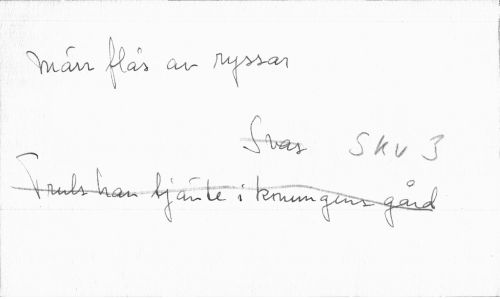 märr flås av ryssar
Svas SKV 3
Truls han tjänte i konungens gård